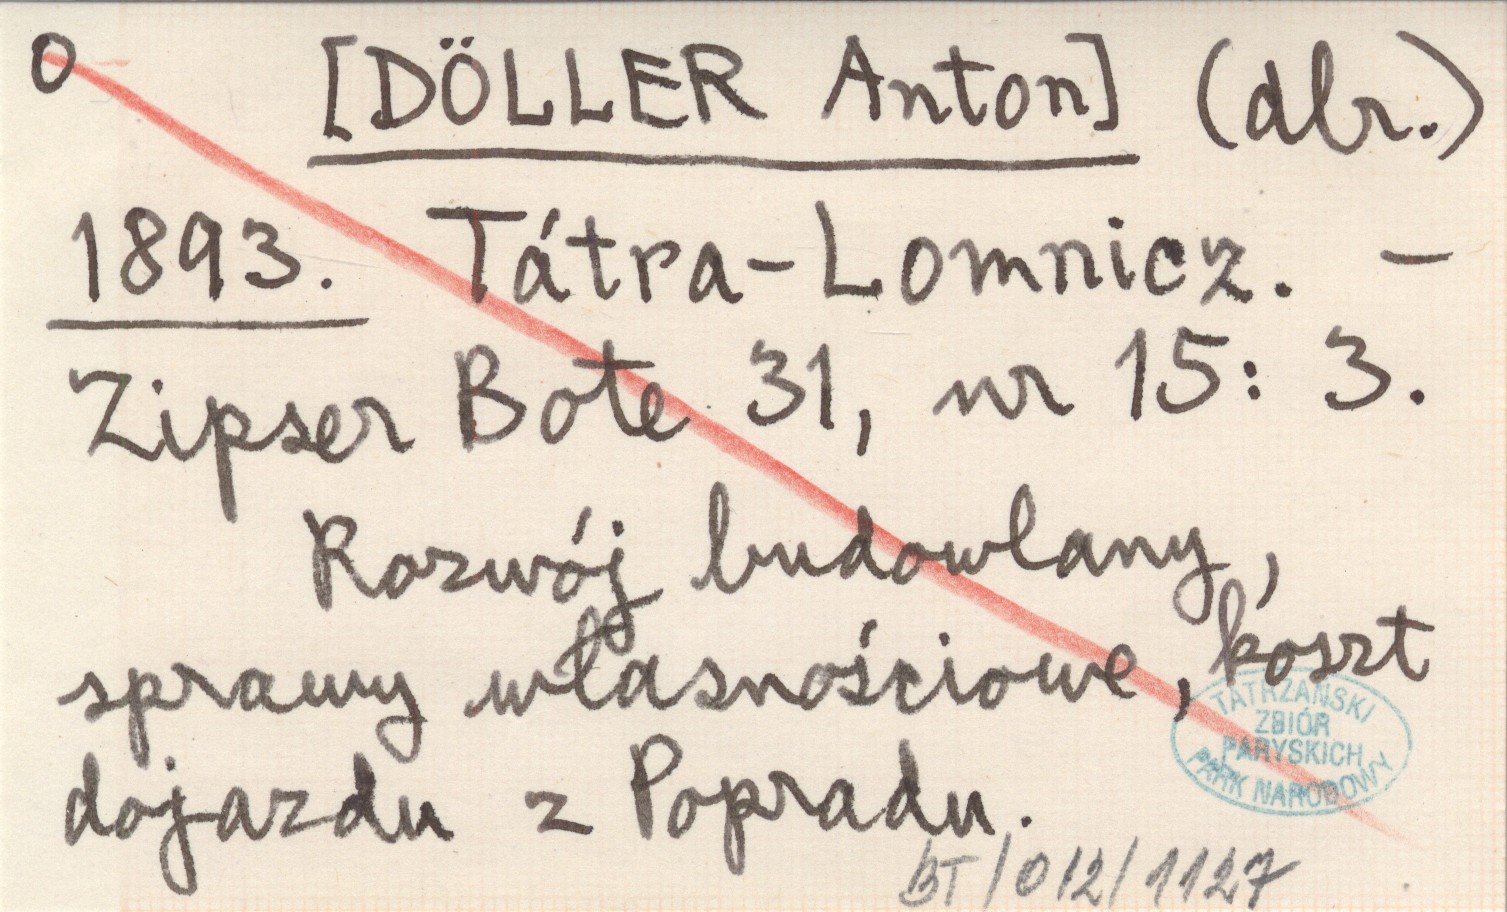 O [DÖLLER Anton] (dbr.)
1893. Tátra-Lomnicz. –
Zipser Bote 31, nr 15: 3.
Rozwój budowlany,
sprawy własnościowe, koszt
dojazdu z Popradu.
TATRZAŃSKI
ZBIÓR
PARYSKICH
PARK NARODOWY
BT/012/1127